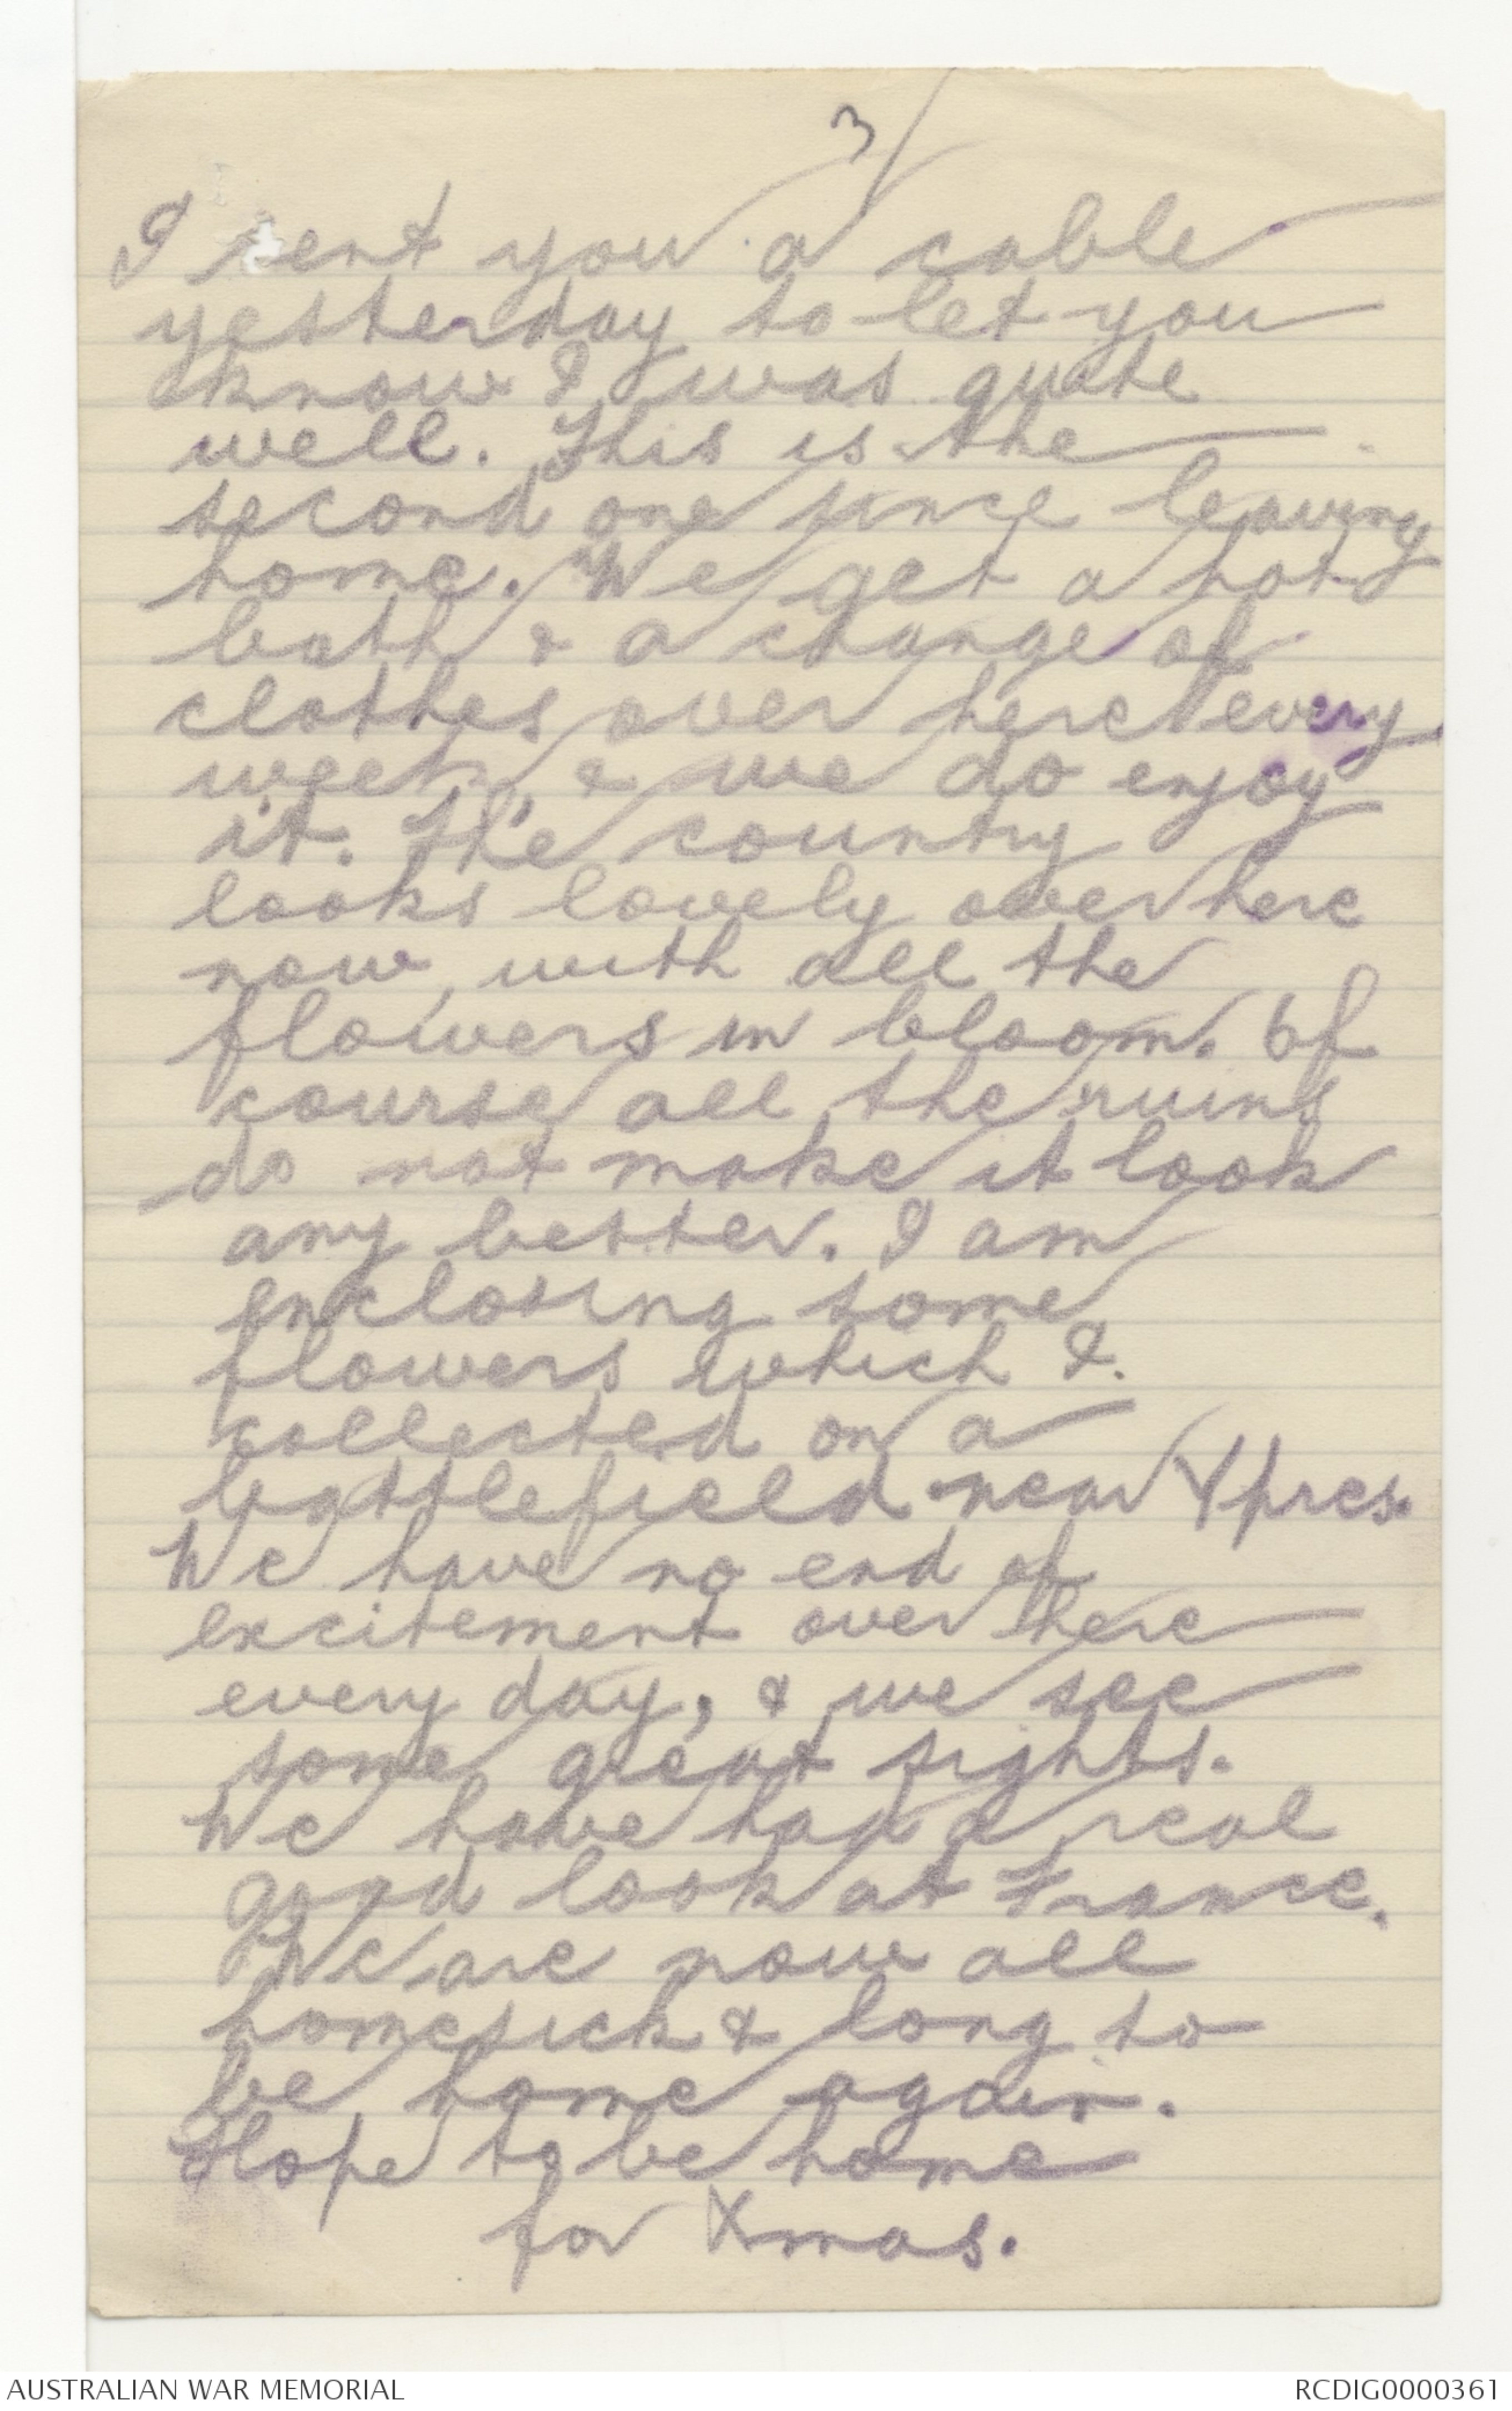 3/
I sent you a cable
yesterday to let you
know I was quite
well. This is the
second one since leaving
home. We get a hot
bath & a change of
clothes over here every
week, & we do enjoy
it. The country
looks lovely over here
now, with all the
flowers in bloom. Of
course all the ruins
do not make it look
any better. I am
enclosing some
flowers which I
collected on a
battlefield near Ypres.
We have no end of
excitement over here
every day, & we see
some great sights.
We have had a real
good look at France.
We are now all
homesick & long to
be home again.
Hope to be home
for Xmas.
AUSTRALIAN WAR MEMORIAL
RCDIG0000361